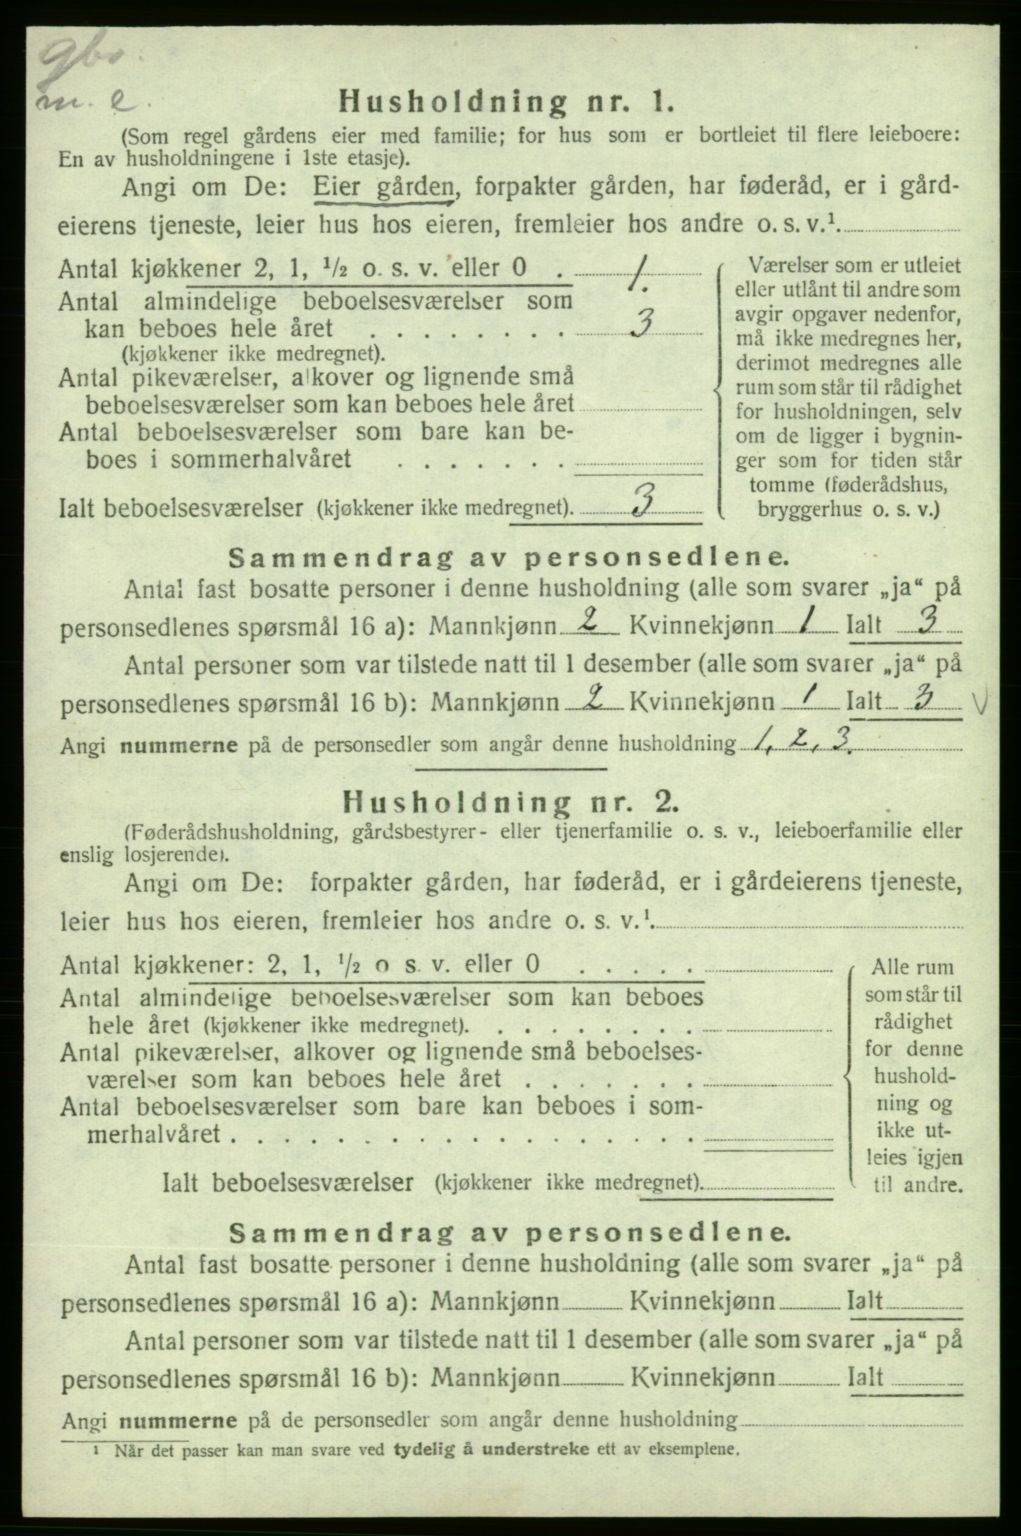 gbo.
m. e.
Husholdning nr. 1.
(Som regel gårdens eier med familie; for hus som er bortleiet til flere leieboere:
En av husholdningene i 1ste etasje).
Angi om De: Eier gården, forpakter gården, har føderåd, er i gård-
eierens tjeneste, leier hus hos eieren, fremleier hos andre o. s. v.¹.
Antal kjøkkener 2, 1, ½ o. s. v. eller 0 . 1.
Antal almindelige beboelsesværelser som
kan beboes hele året . . . . . . . . 3
(kjøkkener ikke medregnet).
Antal pikeværelser, alkover og lignende små
beboelsesværelser som kan beboes hele året
Antal beboelsesværelser som bare kan be-
boes i sommerhalvåret . . . . . . .
Ialt beboelsesværelser (kjøkkener ikke medregnet). 3
Værelser som er utleiet
eller utlånt til andre som
avgir opgaver nedenfor,
må ikke medregnes her,
derimot medregnes alle
rum som står til rådighet
for husholdningen, selv
om de ligger i bygnin-
ger som for tiden står
tomme (føderådshus,
bryggerhus o. s. v.)
Sammendrag av personsedlene.
Antal fast bosatte personer i denne husholdning (alle som svarer „ja“ på
personsedlenes spørsmål 16 a): Mannkjønn 2 Kvinnekjønn 1 Ialt 3
Antal personer som var tilstede natt til 1 desember (alle som svarer „ja“ på
personsedlenes spørsmål 16 b): Mannkjønn 2 Kvinnekjønn 1 Ialt 3 V
Angi nummerne på de personsedler som angår denne husholdning 1, 2, 3.
Husholdning nr. 2.
(Føderådshusholdning, gårdsbestyrer- eller tjenerfamilie o. s. v., leieboerfamilie eller
enslig losjerende).
Angi om De: forpakter gården, har føderåd, er i gårdeierens tjeneste,
leier hus hos eieren, fremleier hos andre o. s. v.¹.
Antal kjøkkener: 2, 1, ½ o s. v. eller 0 . . . . .
Antal almindelige beboelsesværelser som kan beboes
hele året (kjøkkener ikke medregnet). . . . . . . . .
Antal pikeværelser, alkover og lignende små beboelses-
værelser som kan beboes hele året . . . . . . .
Antal beboelsesværelser som bare kan beboes i som-
merhalvåret . . . . . . . . . . . . . . . . . .
Ialt beboelsesværelser (kjøkkener ikke medregnet).
Alle rum
som står til
rådighet
for denne
hushold-
ning og
ikke ut-
leies igjen
til andre.
Sammendrag av personsedlene.
Antal fast bosatte personer i denne husholdning (alle som svarer „ja“ på
personsedlenes spørsmål 16 a): Mannkjønn Kvinnekjønn Ialt
Antal personer som var tilstede natt til 1 desember (alle som svarer „ja“ på
personsedlenes spørsmål 16 b): Mannkjønn Kvinnekjønn Ialt
Angi nummerne på de personsedler som angår denne husholdning
¹ Når det passer kan man svare ved tydelig å understreke ett av eksemplene.